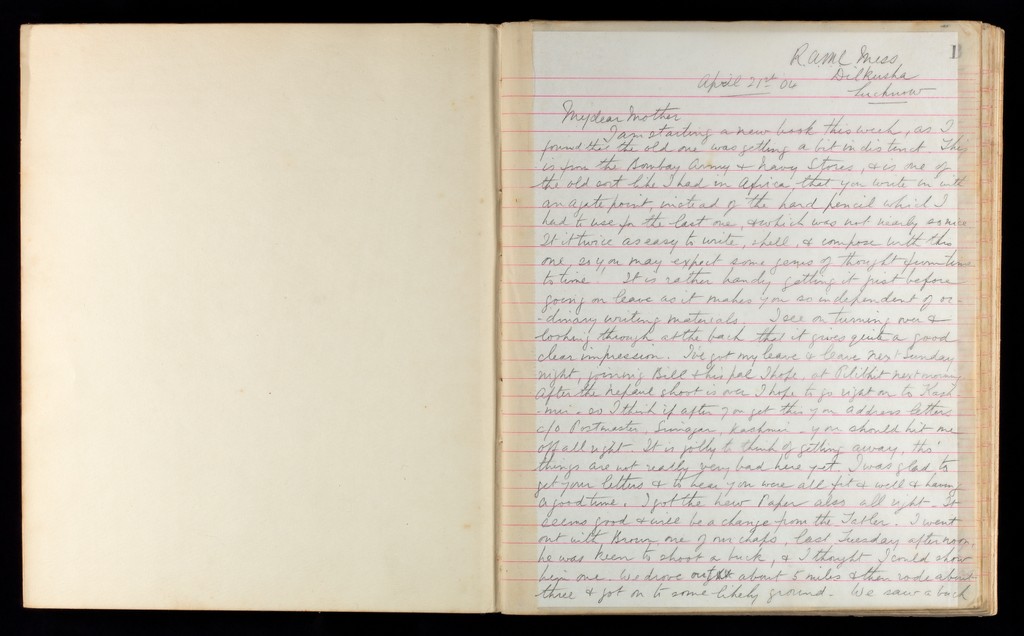 1
R.A.M.C Mess
Dilkusha
Lucknow
April 21st 06
My dear Mother
I am starting a new book this week, as I
found that the old one was getting a bit indistinct. This
is from the Bombay Army & Navy Stores, & is one of
the old sort like I had in Africa, that you write in with
an agate point, instead of the hard pencil which I
had to use for the last one, & which was not nearly so nice
It it twice as easy to write, spell, & compose with this
one, so you may expect some gems of thought from time
to time. It is rather handy getting it just before
going on leave as it makes you so independent of or-
-dinary writing materials. I see on turning over &
looking through at the back that it gives quite a good
clear impression. I've got my leave & leave next Sunday
night, joining Bill & his pal I hope, at Pilibhit next morning
After the Nepaul shoot is over I hope to go right on to Kash-
-mir - so I think if after you get this you address letters
c/o Postmaster, Srinagar, Kashmir - you should hit me
off all right. It is jolly to think of getting away, tho'
things are not really very bad here yet. I was glad to
get your letters & to hear you were all fit & well & having
a good time. I got the new Paper also all right. It
seems good & will be a change from the Tatler. I went
out with Brown one of our chaps, last Tuesday afternoon,
he was keen to shoot a buck, & I thought I could show
him one. We drove out about 5 miles & then rode about
three & got on to some likely ground. We saw a buck